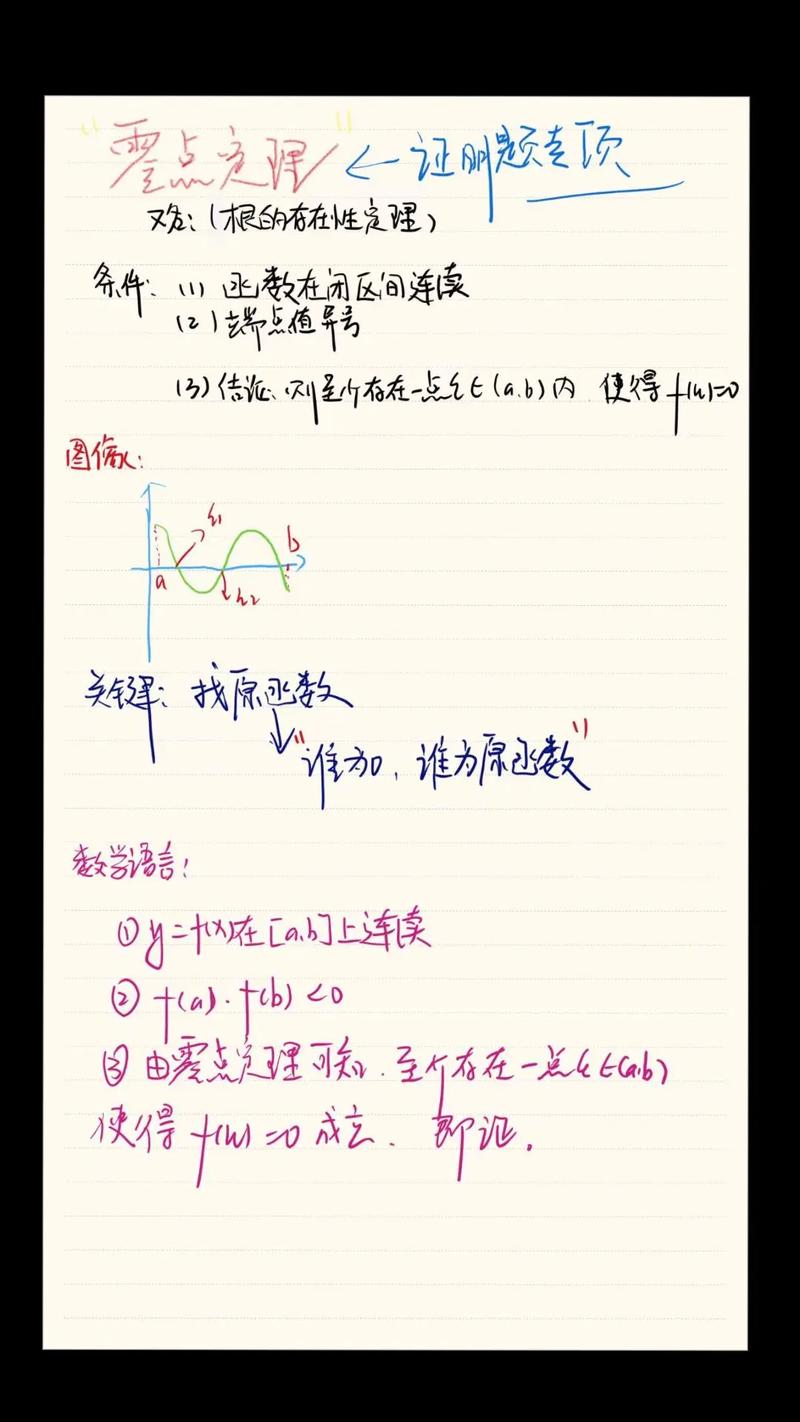 "零点定理" ← 证明题专项
又名：(根的存在性定理)
条件：(1) 函数在闭区间连续
(2) 端点值异号
(3) 结论：则至少存在一点ξ∈(a,b)内 使得 f(ξ)=0
图像：
ξ₁
b
a
ξ₂
关键：找原函数
"谁为0，谁为原函数"
数学语言：
① y=f(x)在[a,b]上连续
② f(a)·f(b)<0
③ 由零点定理可知，至少存在一点ξ∈(a,b)
使得 f(ξ)=0 成立，即证.